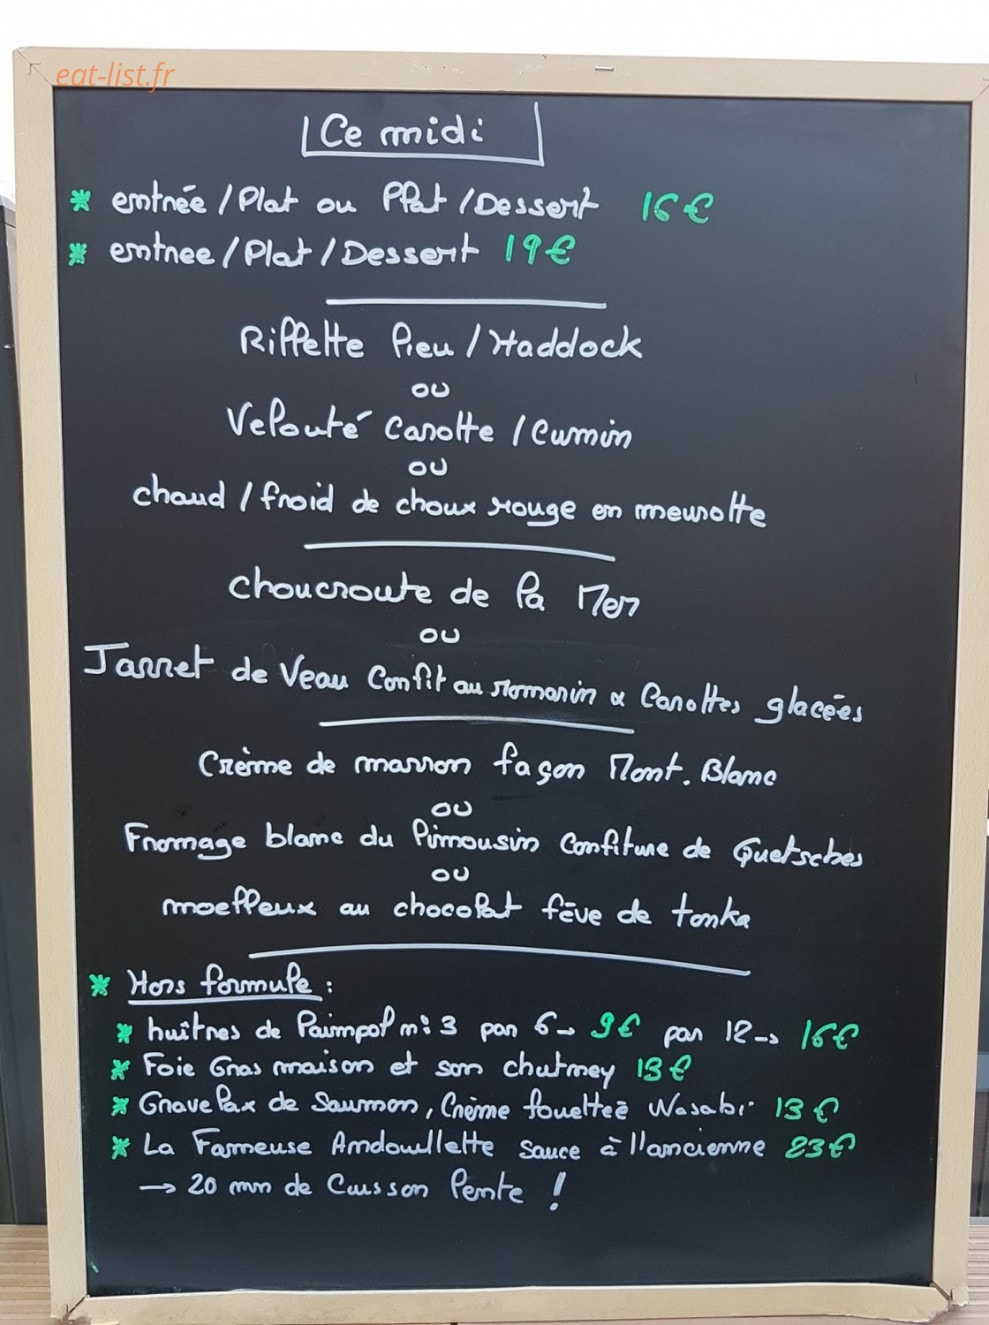 eat-list.fr
Ce midi
* entrée / Plat ou Plat / Dessert 16€
* entree / Plat / Dessert 19€
Rillette lieu / Haddock
ou
Velouté carotte / Cumin
ou
chaud / froid de choux rouge en meurotte
choucroute de la Mer
ou
Jarret de Veau Confit au romarin & Carottes glacées
Crème de marron façon Mont. Blanc
ou
Fromage blanc du Limousin Confiture de Quetsches
ou
moelleux au chocolat fève de tonka
* Hors formule :
* huîtres de Paimpol n: 3 par 6 → 9€ par 12 → 16€
* Foie Gras maison et son chutney 13€
* Gravelax de Saumon, Crème fouettée Wasabi 13€
* La Fameuse Andouillette sauce à l'ancienne 23€
→ 20 mn de Cuisson lente !